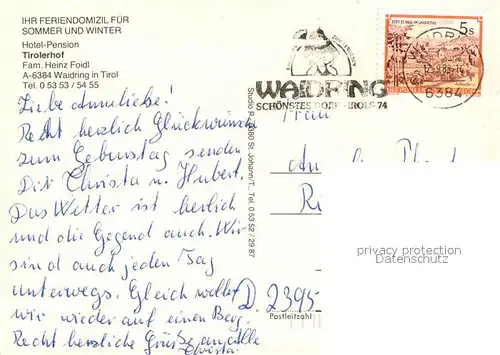 IHR FERIENDOMIZIL FÜR
SOMMER UND WINTER
Hotel-Pension
Tirolerhof
Fam. Heinz Foidl
A-6384 Waidring in Tirol
Tel. 0 53 53 / 54 55
Liebe Anneliebe!
Recht herzlich Glückwünsche
zum Geburtstag senden
Dir Christa u. Hubert.
Das Wetter ist herlich
und die Gegend auch. Wir
sind auch jeden Tag
unterwegs. Gleich wollen
wir wieder auf einen Berg.
Recht herzliche Grüße an alle
Christa
5s
6384
WAIDRING
SCHÖNSTES DORF TIROLS 74
Frau
D. 2395
Postleitzahl
privacy protection
Datenschutz